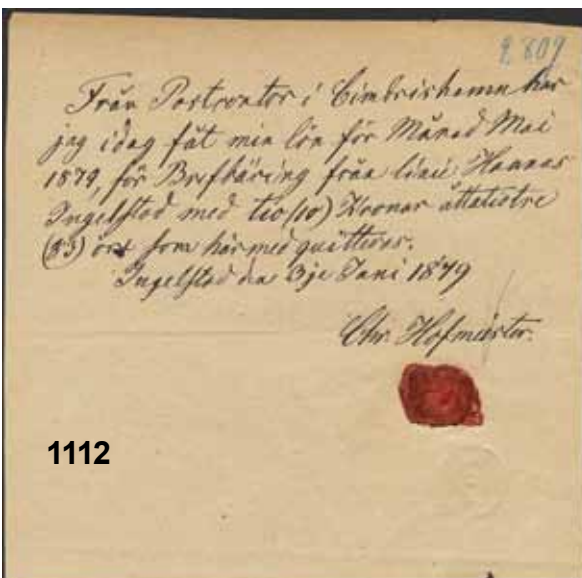 2809
Från Postcontor i Cimbrishamn har
jag idag fåt min lön för Månad Mai
1879, för Brefbäring från linie Hannas
Ingelstad med tio (10) Kronor åttatietre
(83) öre som härmed quitteras.
Ingelstad den 3je Juni 1879
Chr. Hofmeister.
1112